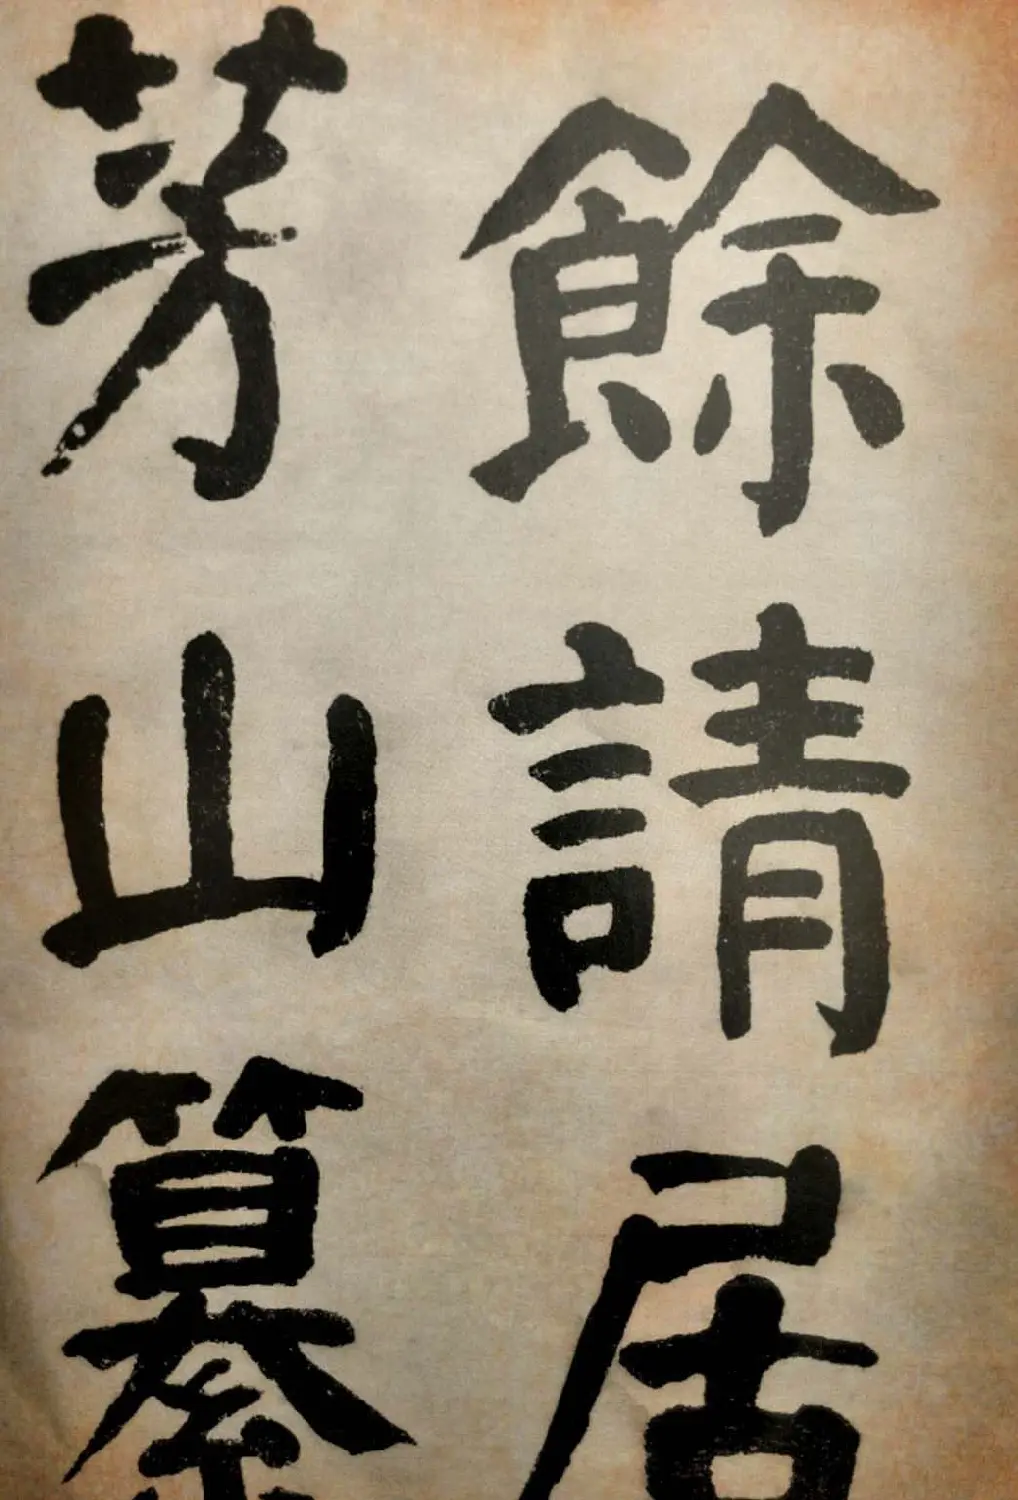 餘請居
茅山纂